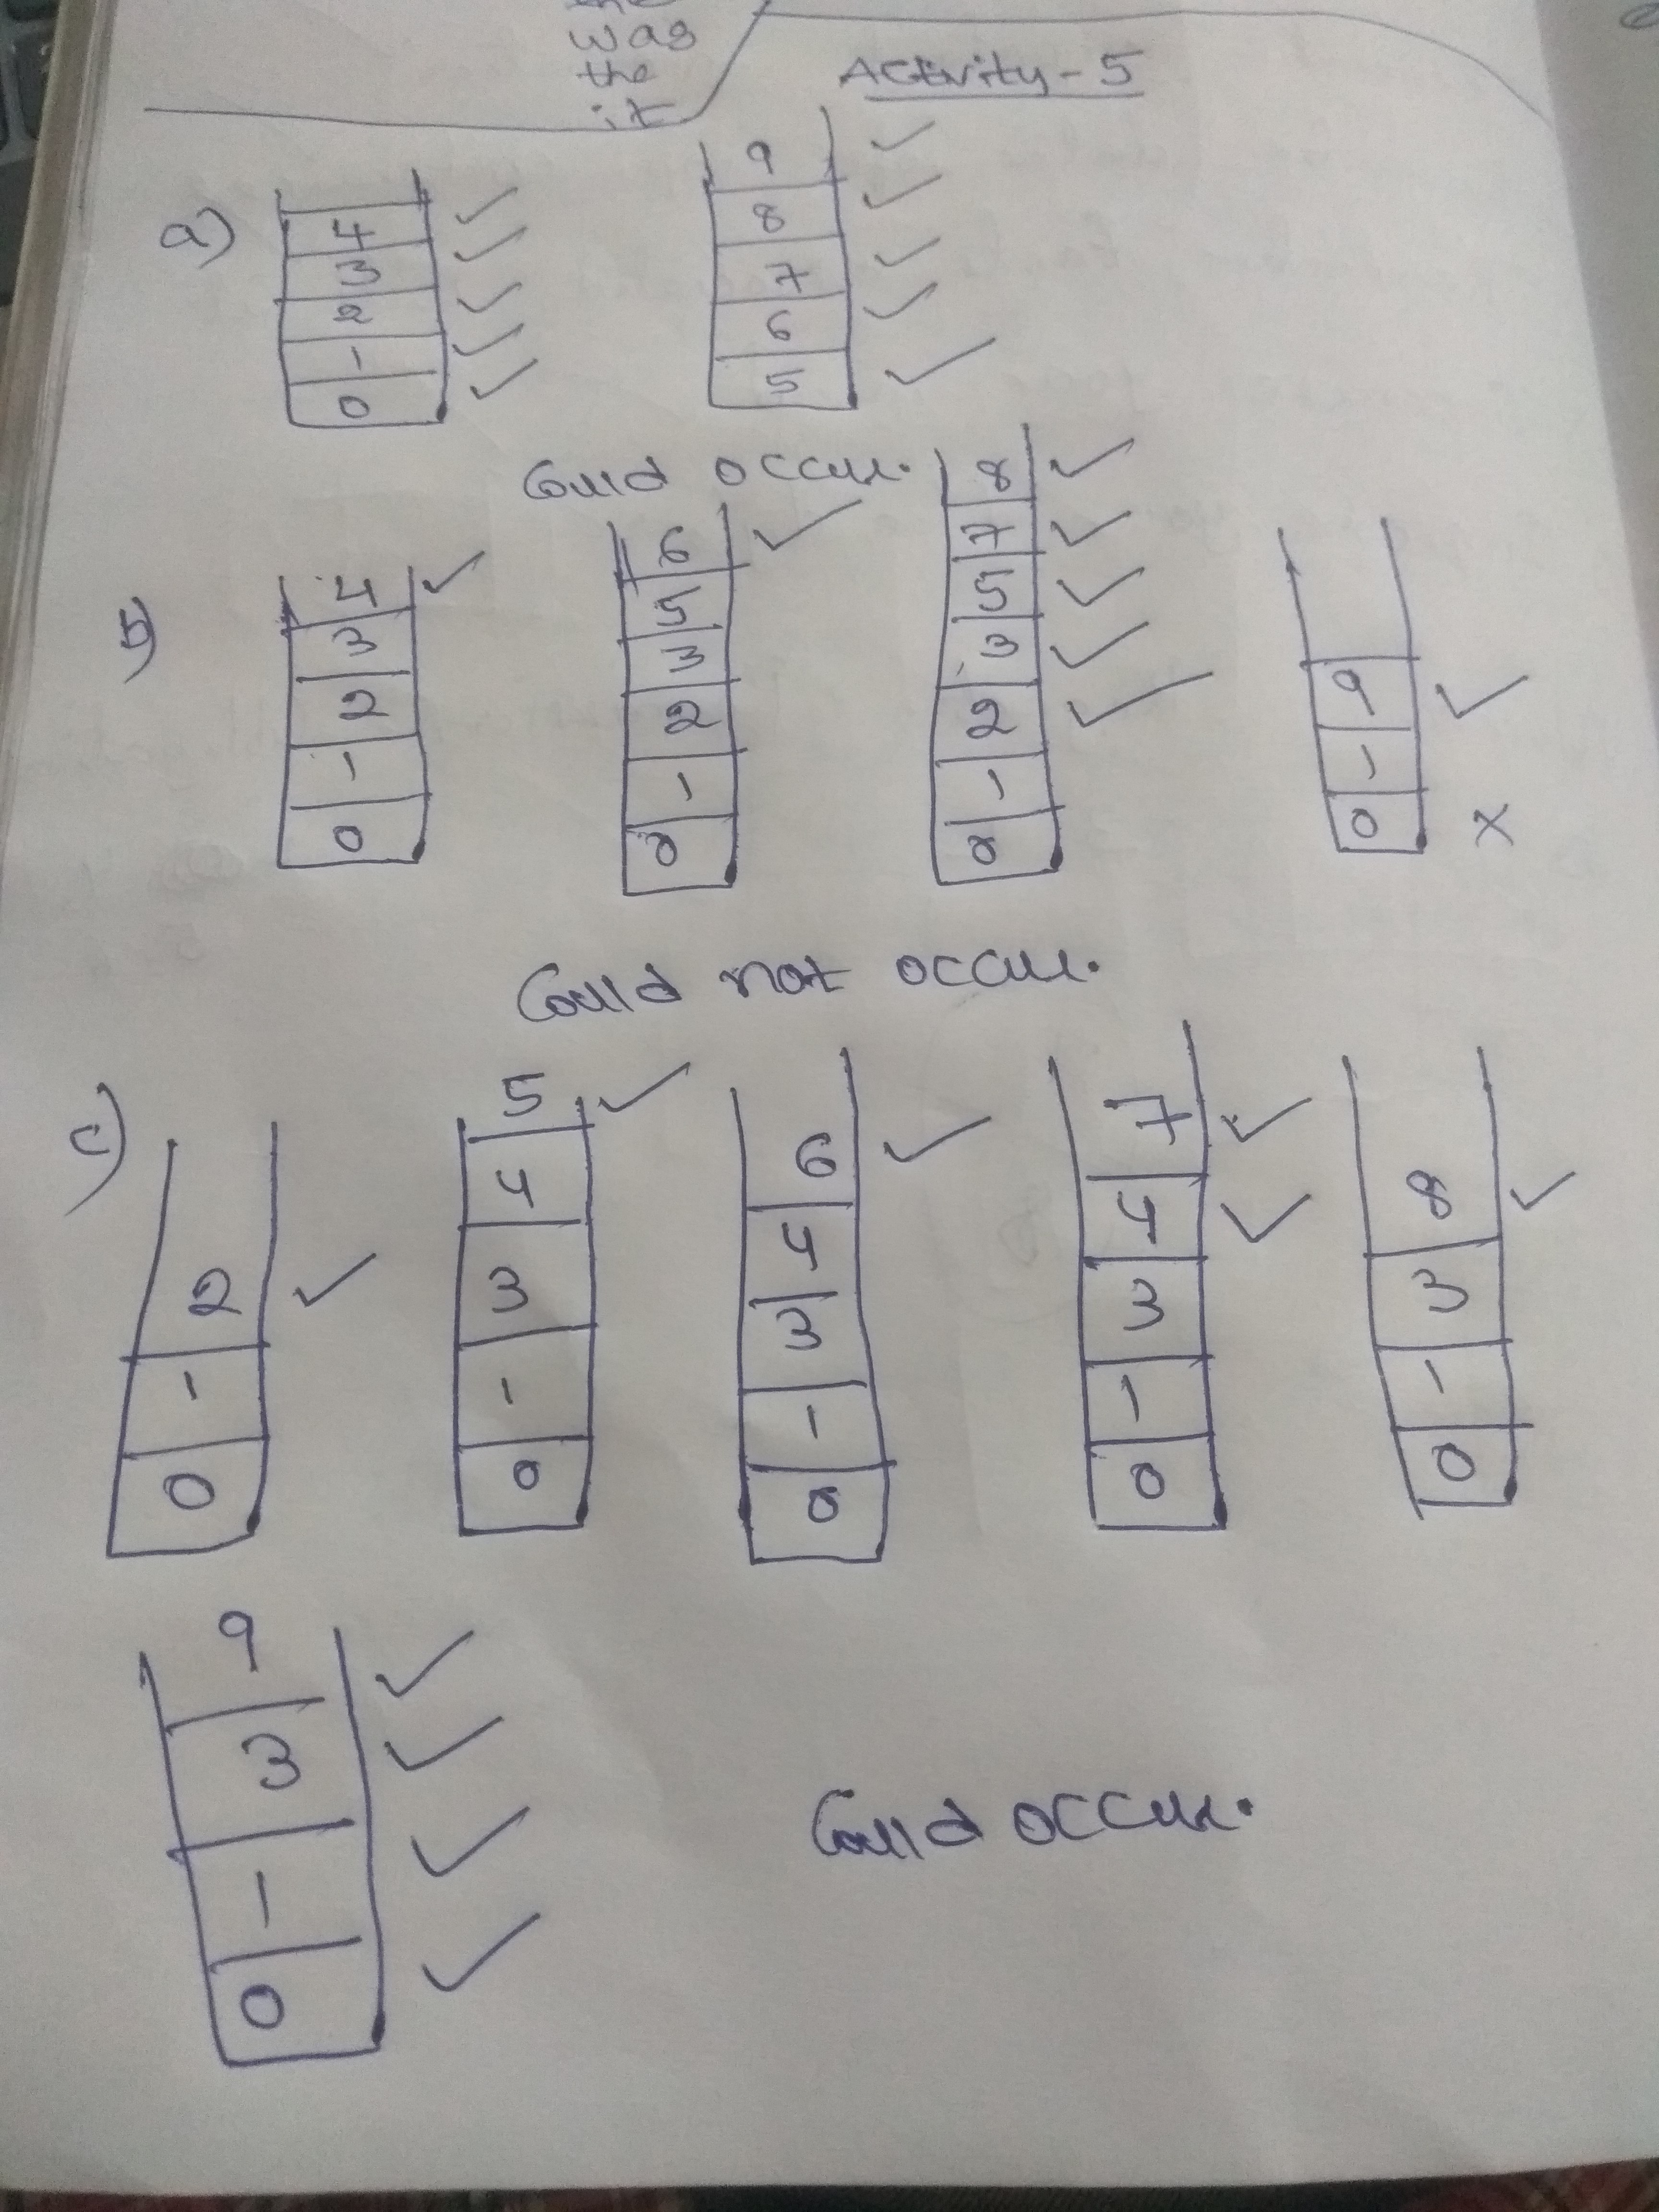 the
was
the
it
Activity - 5
a)
4
3
2
1
0
9
8
7
6
5
Could occur.
b)
4
3
2
1
0
6
5
3
2
1
0
8
7
5
3
2
1
0
9
1
0
x
Could not occur.
c)
2
1
0
5
4
3
1
0
6
4
3
1
0
7
4
3
1
0
8
3
1
0
9
3
1
0
Could occur.